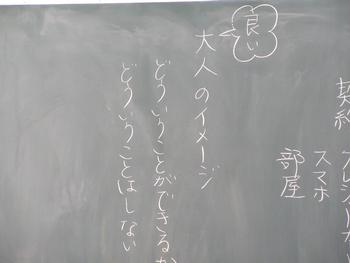 契約
スマホ
部屋
良い
大人のイメージ
どういうことができるか
どういうことはしない